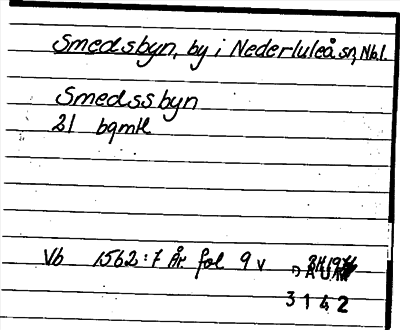 Smedsbyn, by i Nederluleå sn, Nbl.
Smedssbyn
21 bgmtl
Vb 1562:7 År fol 9 v
DAUM
3142